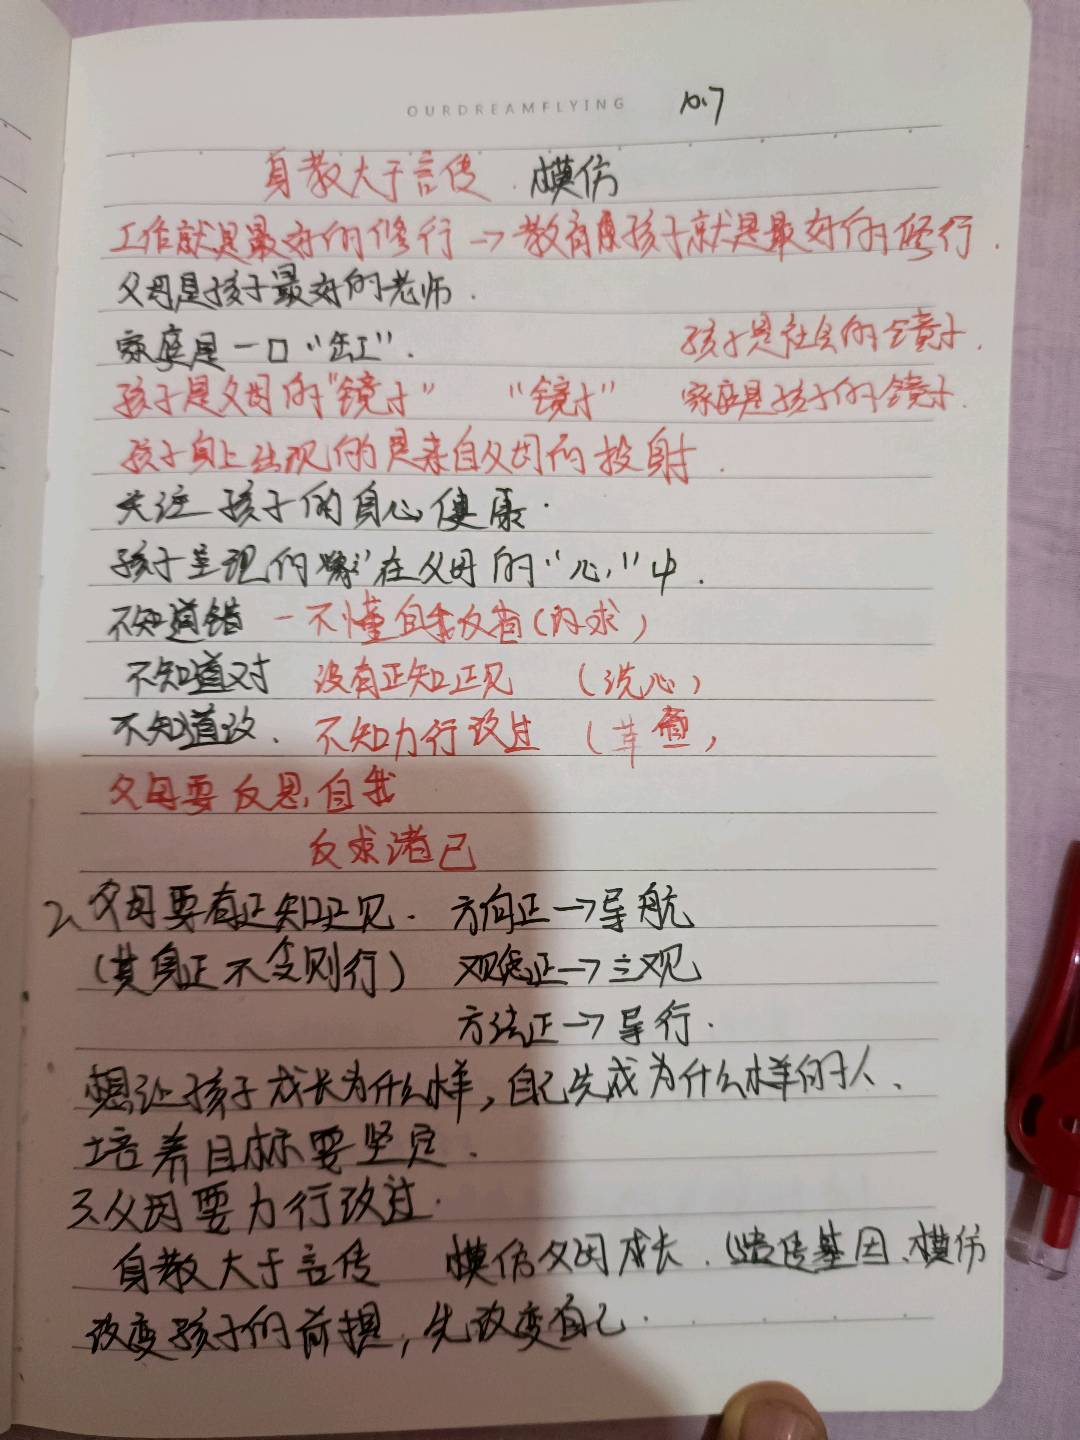 OURDREAMFLYING 10.7
身教大于言传 . 模仿
工作就是最好的修行 → 教育孩子就是最好的修行 .
父母是孩子最好的老师 .
家庭是一口“缸” . 孩子是社会的镜子 .
孩子是父母的“镜子” “镜子” 家庭是孩子的镜子 .
孩子身上出现的是来自父母的投射 .
关注孩子的身心健康 .
孩子呈现的“像”在父母的“心”中 .
不知道错 — 不懂自我反省(内求)
不知道对 没有正知正见 (洗心)
不知道改 . 不知力行改过 (革
父母要反思自我
反求诸己
2、父母要有正知正见 . 方向正→导航
(其身正不令则行) 观念正→三观
方法正→导行 .
想让孩子成长为什么样，自己先成为什么样的人、
培养目标要坚定 .
3、父母要力行改过 .
身教大于言传 模仿父母成长 . (遗传基因、模仿
改变孩子的前提，先改变自己 .